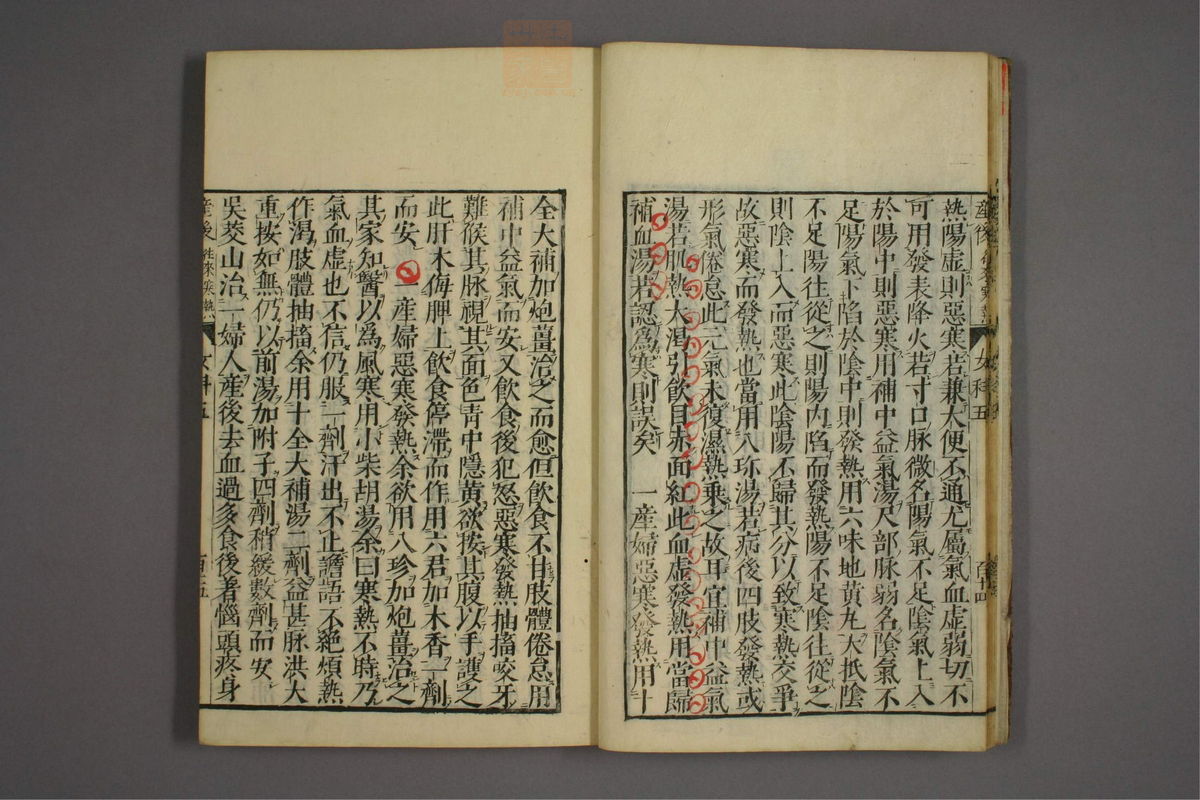 產後往來寒熱 女科五 百十四
熱陽虛則惡寒若兼大便不通尤屬氣血虛弱切不
可用發表降火若寸口脉微名陽氣不足陰氣上入
於陽中則惡寒用補中益氣湯尺部脉弱名陰氣不
足陽氣下陷於陰中則發熱用六味地黃丸大抵陰
不足陽往從之則陽內陷而發熱陽不足陰往從之
則陰上入而惡寒此陰陽不歸其分以致寒熱交爭
故惡寒而發熱也當用八珍湯若病後四肢發熱或
形氣倦怠此元氣未復濕熱乘之故耳宜補中益氣
湯若肌熱大渴引飲目赤面紅此血虛發熱用當歸
補血湯若認爲寒則誤矣 一產婦惡寒發熱用十
全大補加炮薑治之而愈但飲食不甘肢體倦怠用
補中益氣而安又飲食後犯怒惡寒發熱抽搐咬牙
難候其脉視其面色青中隱黃欲按其腹以手護之
此肝木侮脾土飲食停滯而作用六君加木香一劑
而安 一產婦惡寒發熱余欲用八珍加炮薑治之
其家知醫以爲風寒用小柴胡湯余曰寒熱不時乃
氣血虛也不信仍服一劑汗出不止譫語不絕煩熱
作渴肢體抽搐余用十全大補湯二劑益甚脉洪大
重按如無仍以前湯加附子四劑稍緩數劑而安
吳茭山治一婦人產後去血過多食後著惱頭疼身
產後往來寒熱 女科五 百十五